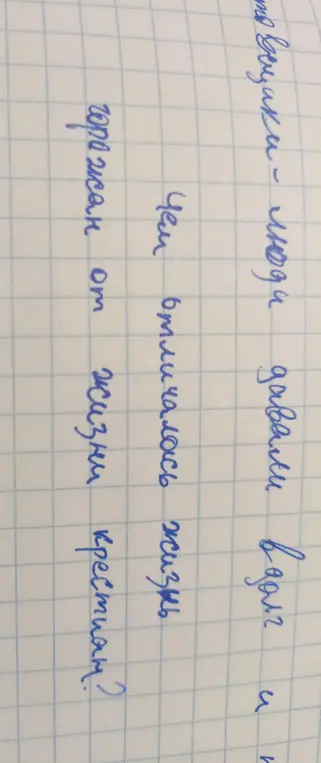 вщики - люди давали в долг и
Чем отличалась жизнь
горожан от жизни крестиан?